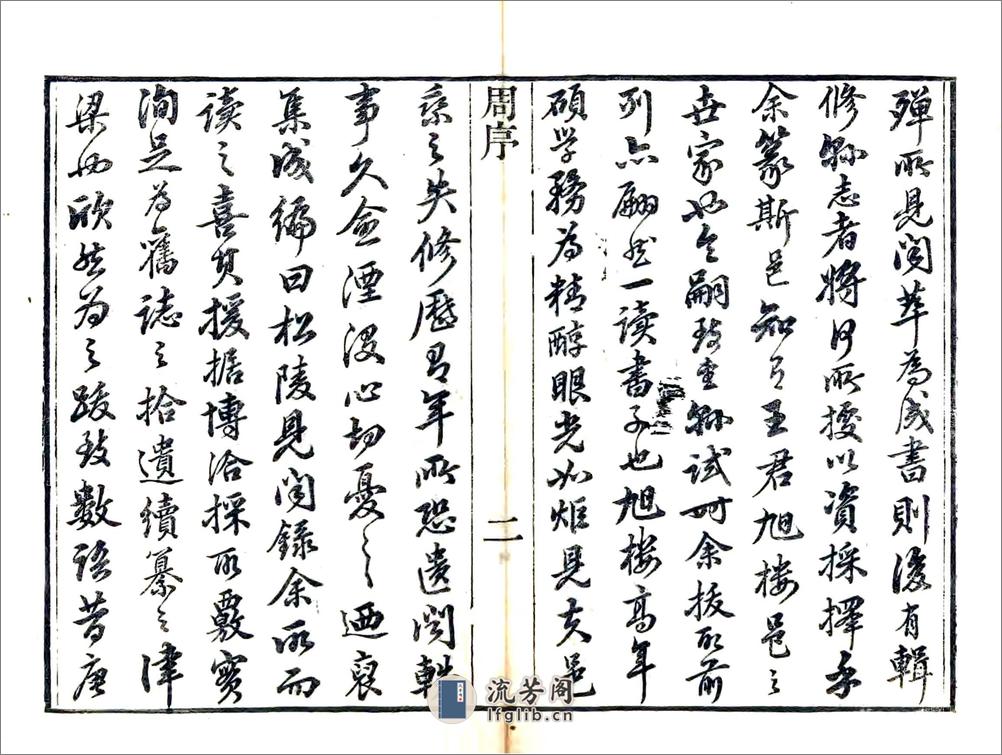 殫所見聞萃為成書則後有輯
修縣志者將何所據以資採擇乎
余篆斯邑知有王君旭樓邑之
世家也令嗣縣試時余拔取前
列亦翩然一读書子也旭樓高年
碩学務為精醇眼光如炬見夫邑
周序
二
乘之失修歷有年所恐遺聞軼
事久愈湮沒心切憂之迺裒
集成編曰松陵見聞錄余取而
读之喜其援据博洽採取覈實
洵足為舊誌之拾遺續纂之津
梁欣然为之跋數語昔唐
流芳阁
lfglib.cn